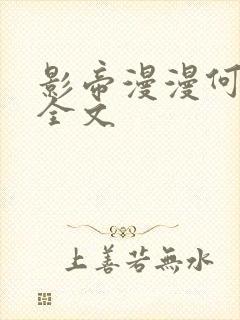 影帝漫漫何
全文
上善若無水